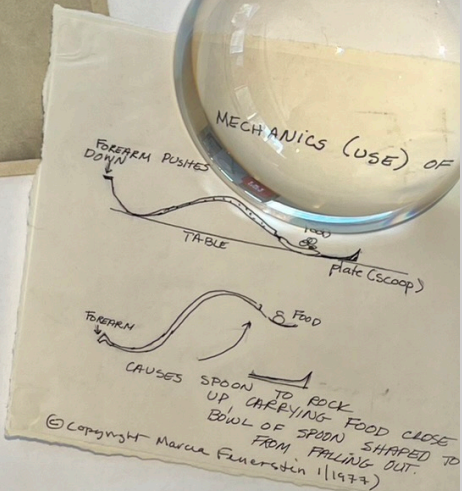 MECHANICS (USE) OF
FOREARM PUSHES
DOWN
FOOD
TABLE
plate (scoop)
FOOD
FOREARM
CAUSES SPOON TO ROCK
UP CARRYING FOOD CLOSE
BOWL OF SPOON SHAPED TO
FROM FALLING OUT.
© Copyright Marcia Feuerstein 1/1977)